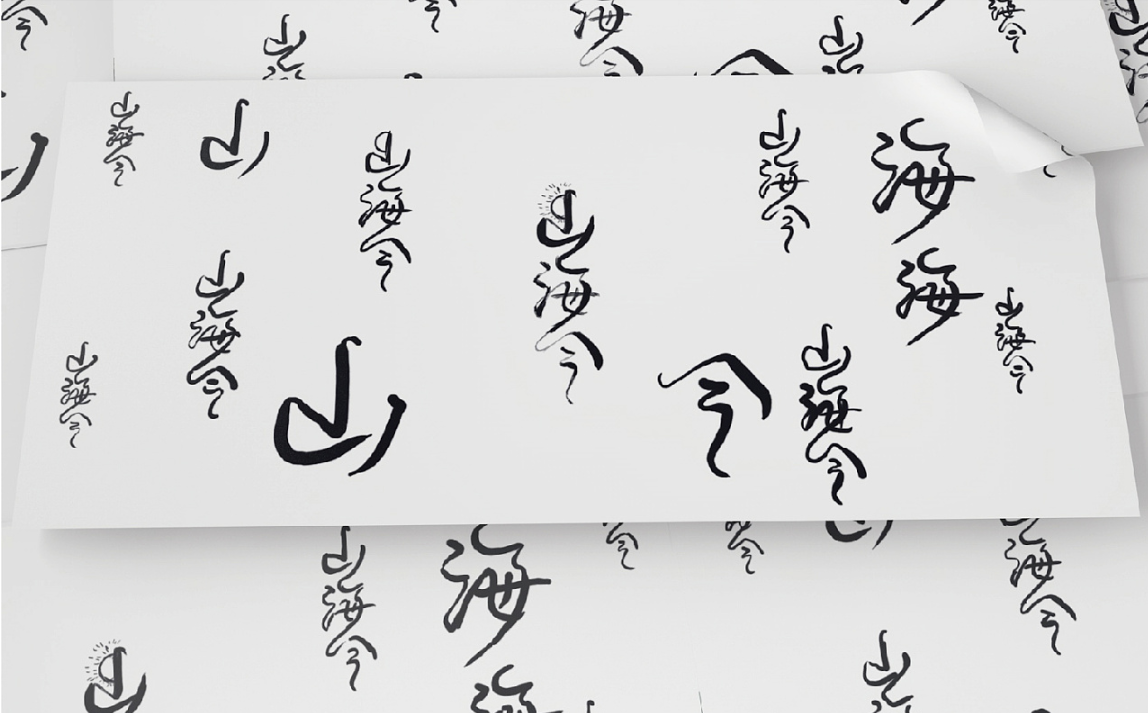 山
海今
山
海今
山海今
山
山海今
山海今
山海今
海
海
山海今
山海今
山海今
山
今
山海今
山海今
山海今
海
海
今
今
海今
山
山